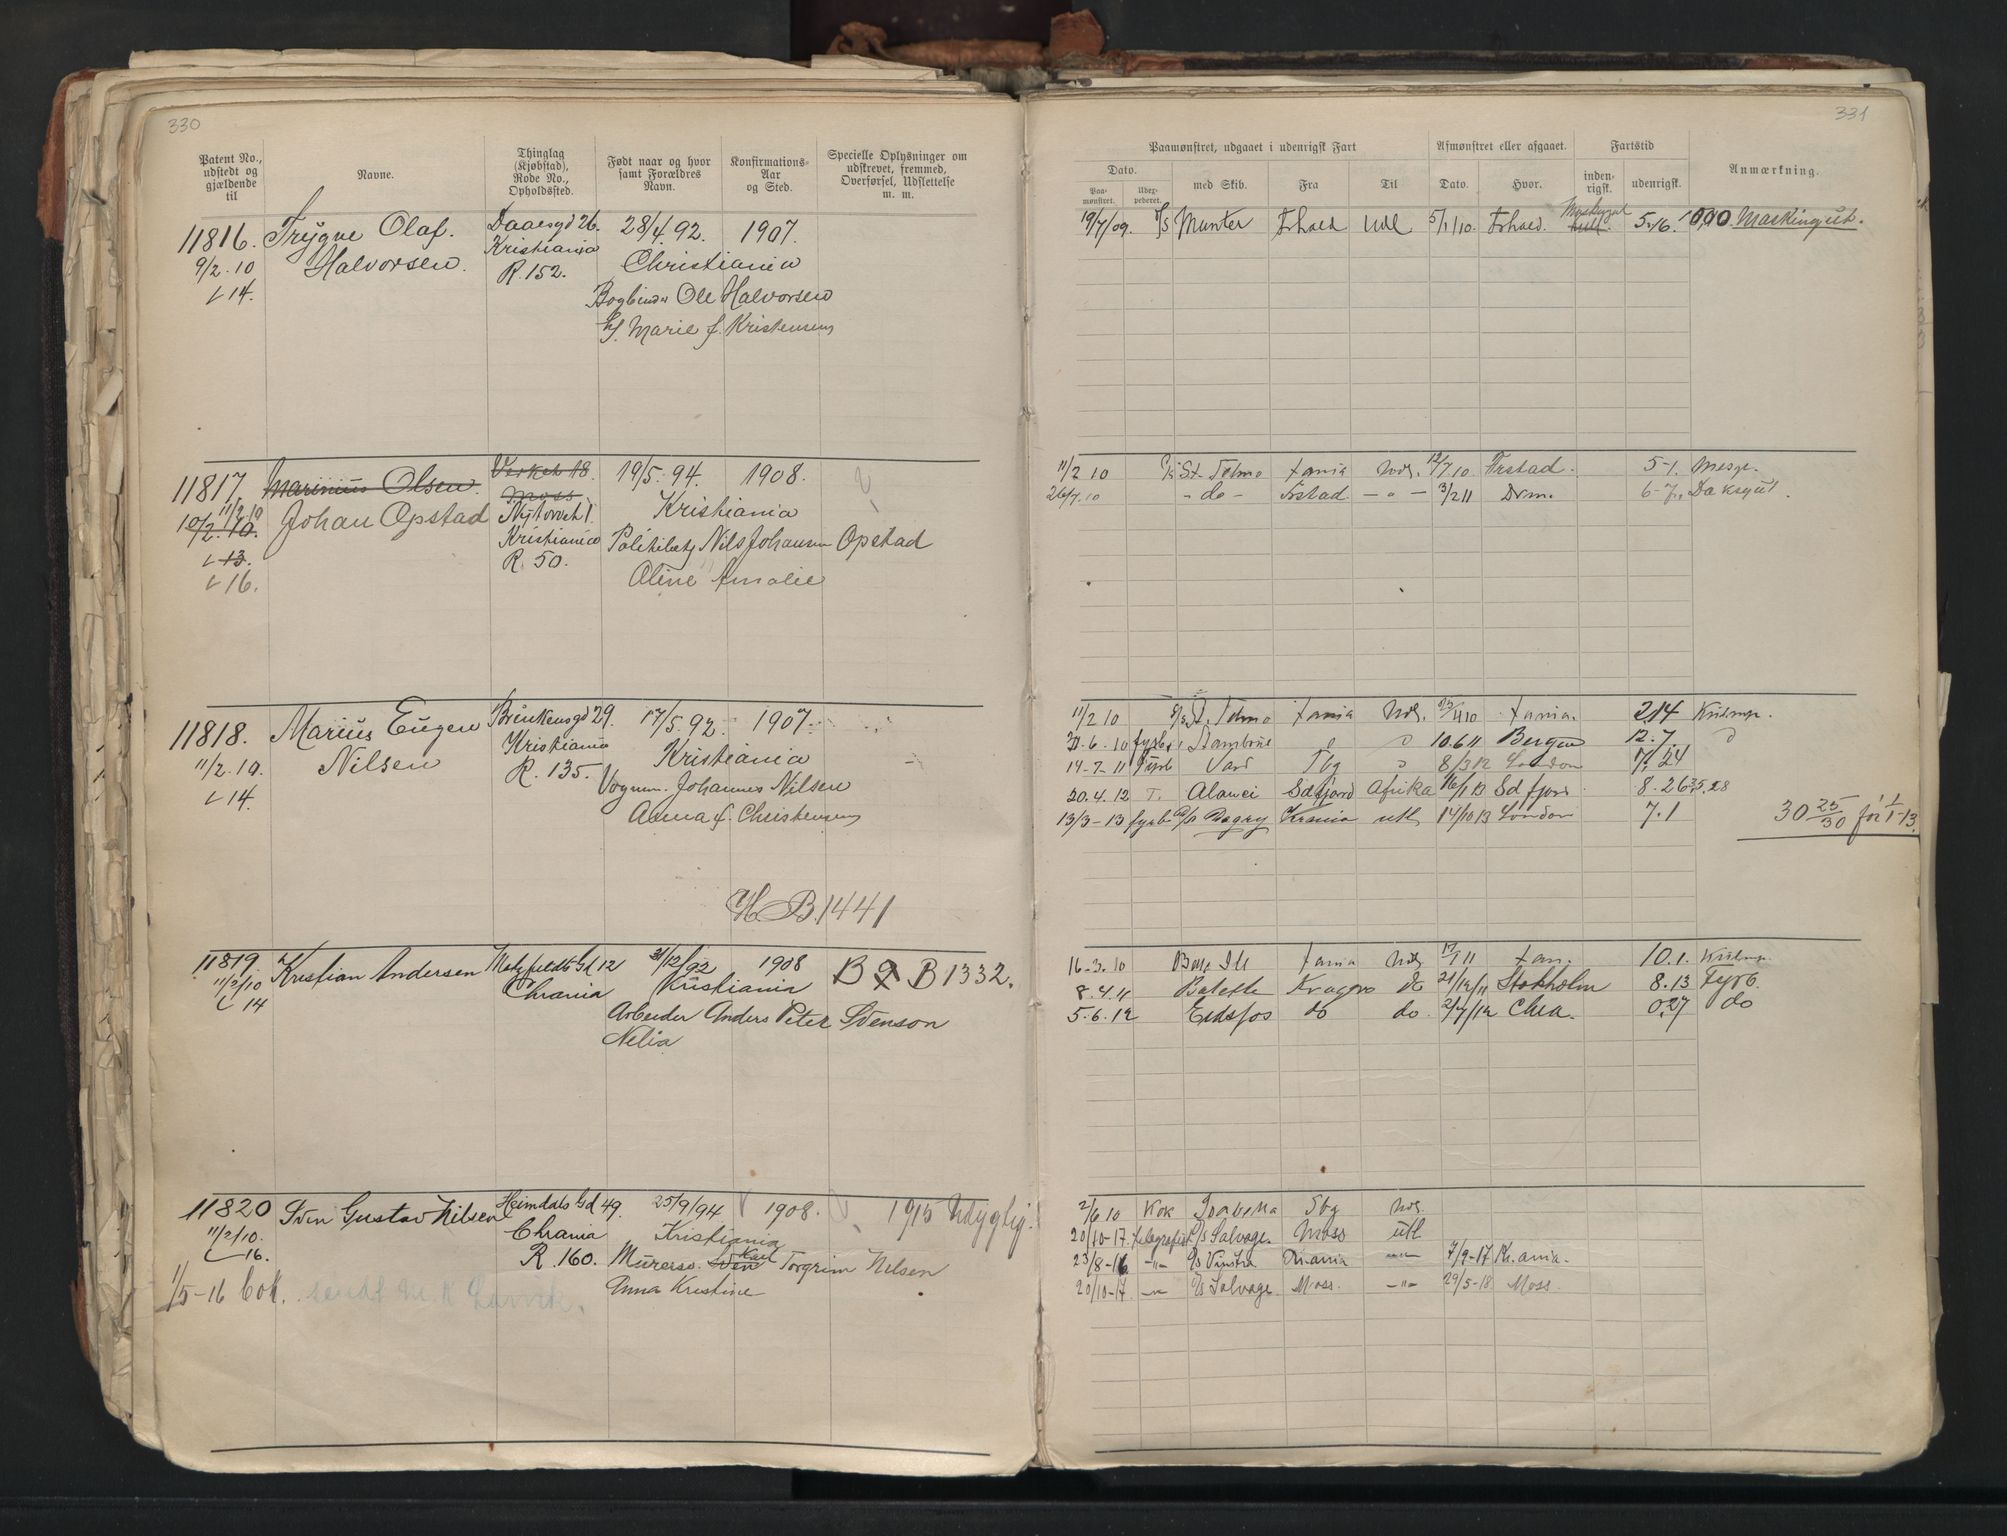 330
Patent No., udstedt og gjældende til
Navne.
Thinglag (Kjøbstad), Rode No., Opholdssted.
Født naar og hvor samt Forældres Navn.
Konfirmations-Aar og Sted.
Specielle Oplysninger om udskrevet, fremmed, Overførsel, Udslettelse m. m.
11816.
9/2.10
14.
Trygve Olaf.
Halvorsen.
Daaesgd 26.
Kristiania
R. 152.
28/4.92. 1907.
Christiania
Bogbinder Ole Halvorsen
Marie f. Kristensen
11817.
11/2 10
10/2.10.
13.
16.
Marinius Olsen.
Johan Opstad
Verket 18.
Moss
Nytorvet 1.
Kristiania
R. 50.
19/5.94. 1908.
Kristiania
Nils Johansen Opstad
Oline Amalie
11818.
11/2.10.
14.
Marius Eugen
Nilsen
Brinkensgd 29.
Kristiania
R. 135.
17/5.92. 1907.
Kristiania
Vogmn. Johannes Nilsen
Anna f. Christensen
H. B. 1441
11819
11/2/10
14
Kristian Andersen
Gd 12
Chrania
31/12/92 1908
Kristiania
Arbeider Anders Peter Svenson
Nelia
B 1332.
11820
11/2/10.
16.
1/5-16
Sven Gustav Nilsen
Heimdals Gd 49.
Chrania
R. 160.
25/9/94 1908.
Kristiania
Murersv. Sven Karl Torgrim Nilsen
Anna Kristine
1915
331
Paamønstret, udgaaet i udenrigsk Fart
Afmønstret eller afgaaet.
Fartstid
Anmærkning.
Dato.
Paamønstret.
Uderpederet.
med Skib.
Fra
Til
Dato.
Hvor.
indenrigsk.
udenrigsk.
19/7/09. S/S Munter Frhald Udl 5/1/10. Frhald. 5.16. Maskingut.
11/2 10 St. Telmo Xania Udl. 12/7 10 Frstad. 5-1. Mesgt.
26/7.10 - do - Frstad. - " - 3/2 11 Drm. 6-7. Daksgut.
11/2 10 St. Telmo Xania Udl. Xania. 214
6.10 fyrb. " " 10.6 11 Bergen 12.7 "
14-7-11 Fyrb Vard Tbg " 8/3 12 London
20.4.12 Sdfjord Afrika 16/1 13 Sdfjord 8.26
13/3-13 fyrb Krania utl 14/10 13 London 7.1
30 25/30 før 1/1-13.
16-3.10 Xania Udl 11 Xan. 10.1.
8.4.11 Kragerø do 21/12/11 Stokholm 8.13 Fyrb.
5.6.12 Eidsfos do do. 2/7/12 Chra. 0.27 do
2/6 10 Kok Isabella Sbg Udl.
20/10-17. telegrafist S/S Salvage. Moss utl
23/8-16 -"- Krania -"- 7/9-17 Kr.ania.
20/10-17. -"- S/S Salvage. Moss. -"- 29/5-18. Moss.